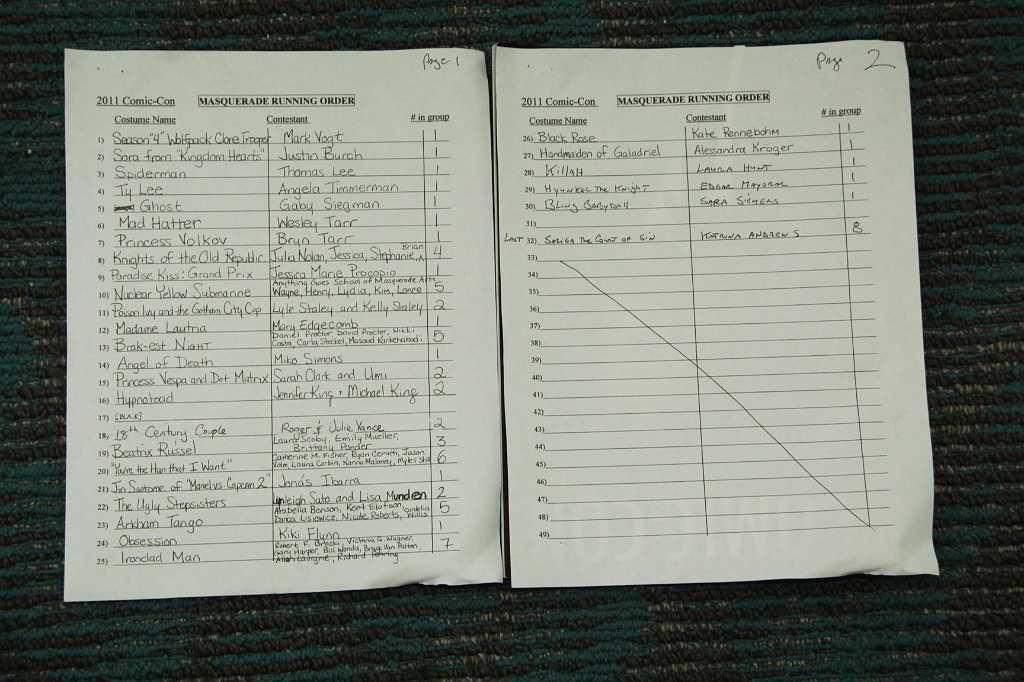 Page 1
2011 Comic-Con MASQUERADE RUNNING ORDER
Costume Name Contestant # in group
1) Season "4" Wolfpack Clone Trooper Mark Vogt 1
2) Sora from "Kingdom Hearts" Justin Burch 1
3) Spiderman Thomas Lee 1
4) Ty Lee Angela Timmerman 1
5) Ghost Gaby Siegman 1
6) Mad Hatter Wesley Tarr 1
7) Princess Volkov Bryn Tarr 1
8) Knights of the Old Republic Julia Nolan, Jessica, Stephanie, Brian 4
9) Paradise Kiss: Grand Prix Jessica Marie Procopio 1
Anything Goes School of Masquerade Arts
10) Nuclear Yellow Submarine Wayne, Henry, Lydia, Kim, Lance 5
11) Poison Ivy and the Gotham City Cop Lyle Staley and Kelly Staley 2
12) Madame Lautria Mary Edgecomb 1
Daniel Proctor, David Proctor, Nikki
13) Brak-est NIGHT Costa, Carla Masoud 5
14) Angel of Death Miko Simons 1
15) Princess Vespa and Dot Matrix Sarah Clark and Umi 2
16) Hypnotoad Jennifer King + Michael King 2
17)
18) 18th Century Couple Roger & Julie Vance 2
Laura Scoby, Emily Mueller,
19) Beatrix Russel Brittany Ponder 3
Catherine M. Fisher, Ryan Jason
20) "You're the Man that I Want" Laura Corbin, Karina Maloney, Myles 6
21) Jin Saotome of "Marvel vs Capcom 2" Jonas Ibarra 1
22) The Ugly Stepsisters Sato and Lisa Munden 2
Arabella Benson, Kent
23) Arkham Tango Nicole Roberts, Willis 5
24) Obsession Kiki Flynn 1
Robert F. Victoria G. Wagner,
25) Ironclad Man Gary Harper, Bill Bryce Van Patten, 7
Allen Lavigne, Richard
Page 2
2011 Comic-Con MASQUERADE RUNNING ORDER
Costume Name Contestant # in group
26) Black Rose Kate Rennebohm 1
27) Handmaiden of Galadriel Alessandra Kroger 1
28) KILLAH LAURA HUNT 1
29) HYUNKEL THE KNIGHT EDGAR MAYORAL 1
30) BLING BABYDOLL SARA 1
31)
LAST 32) THE COURT OF SIN KATRINA ANDREWS 8
33)
34)
35)
36)
37)
38)
39)
40)
41)
42)
43)
44)
45)
46)
47)
48)
49)